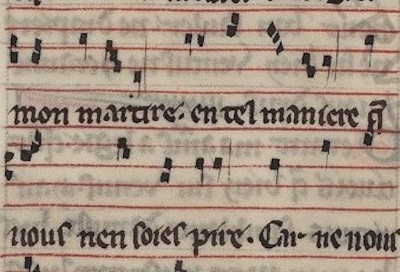 mon martire. en tel maniere q̃
uous nen soies pire. Car ne uous